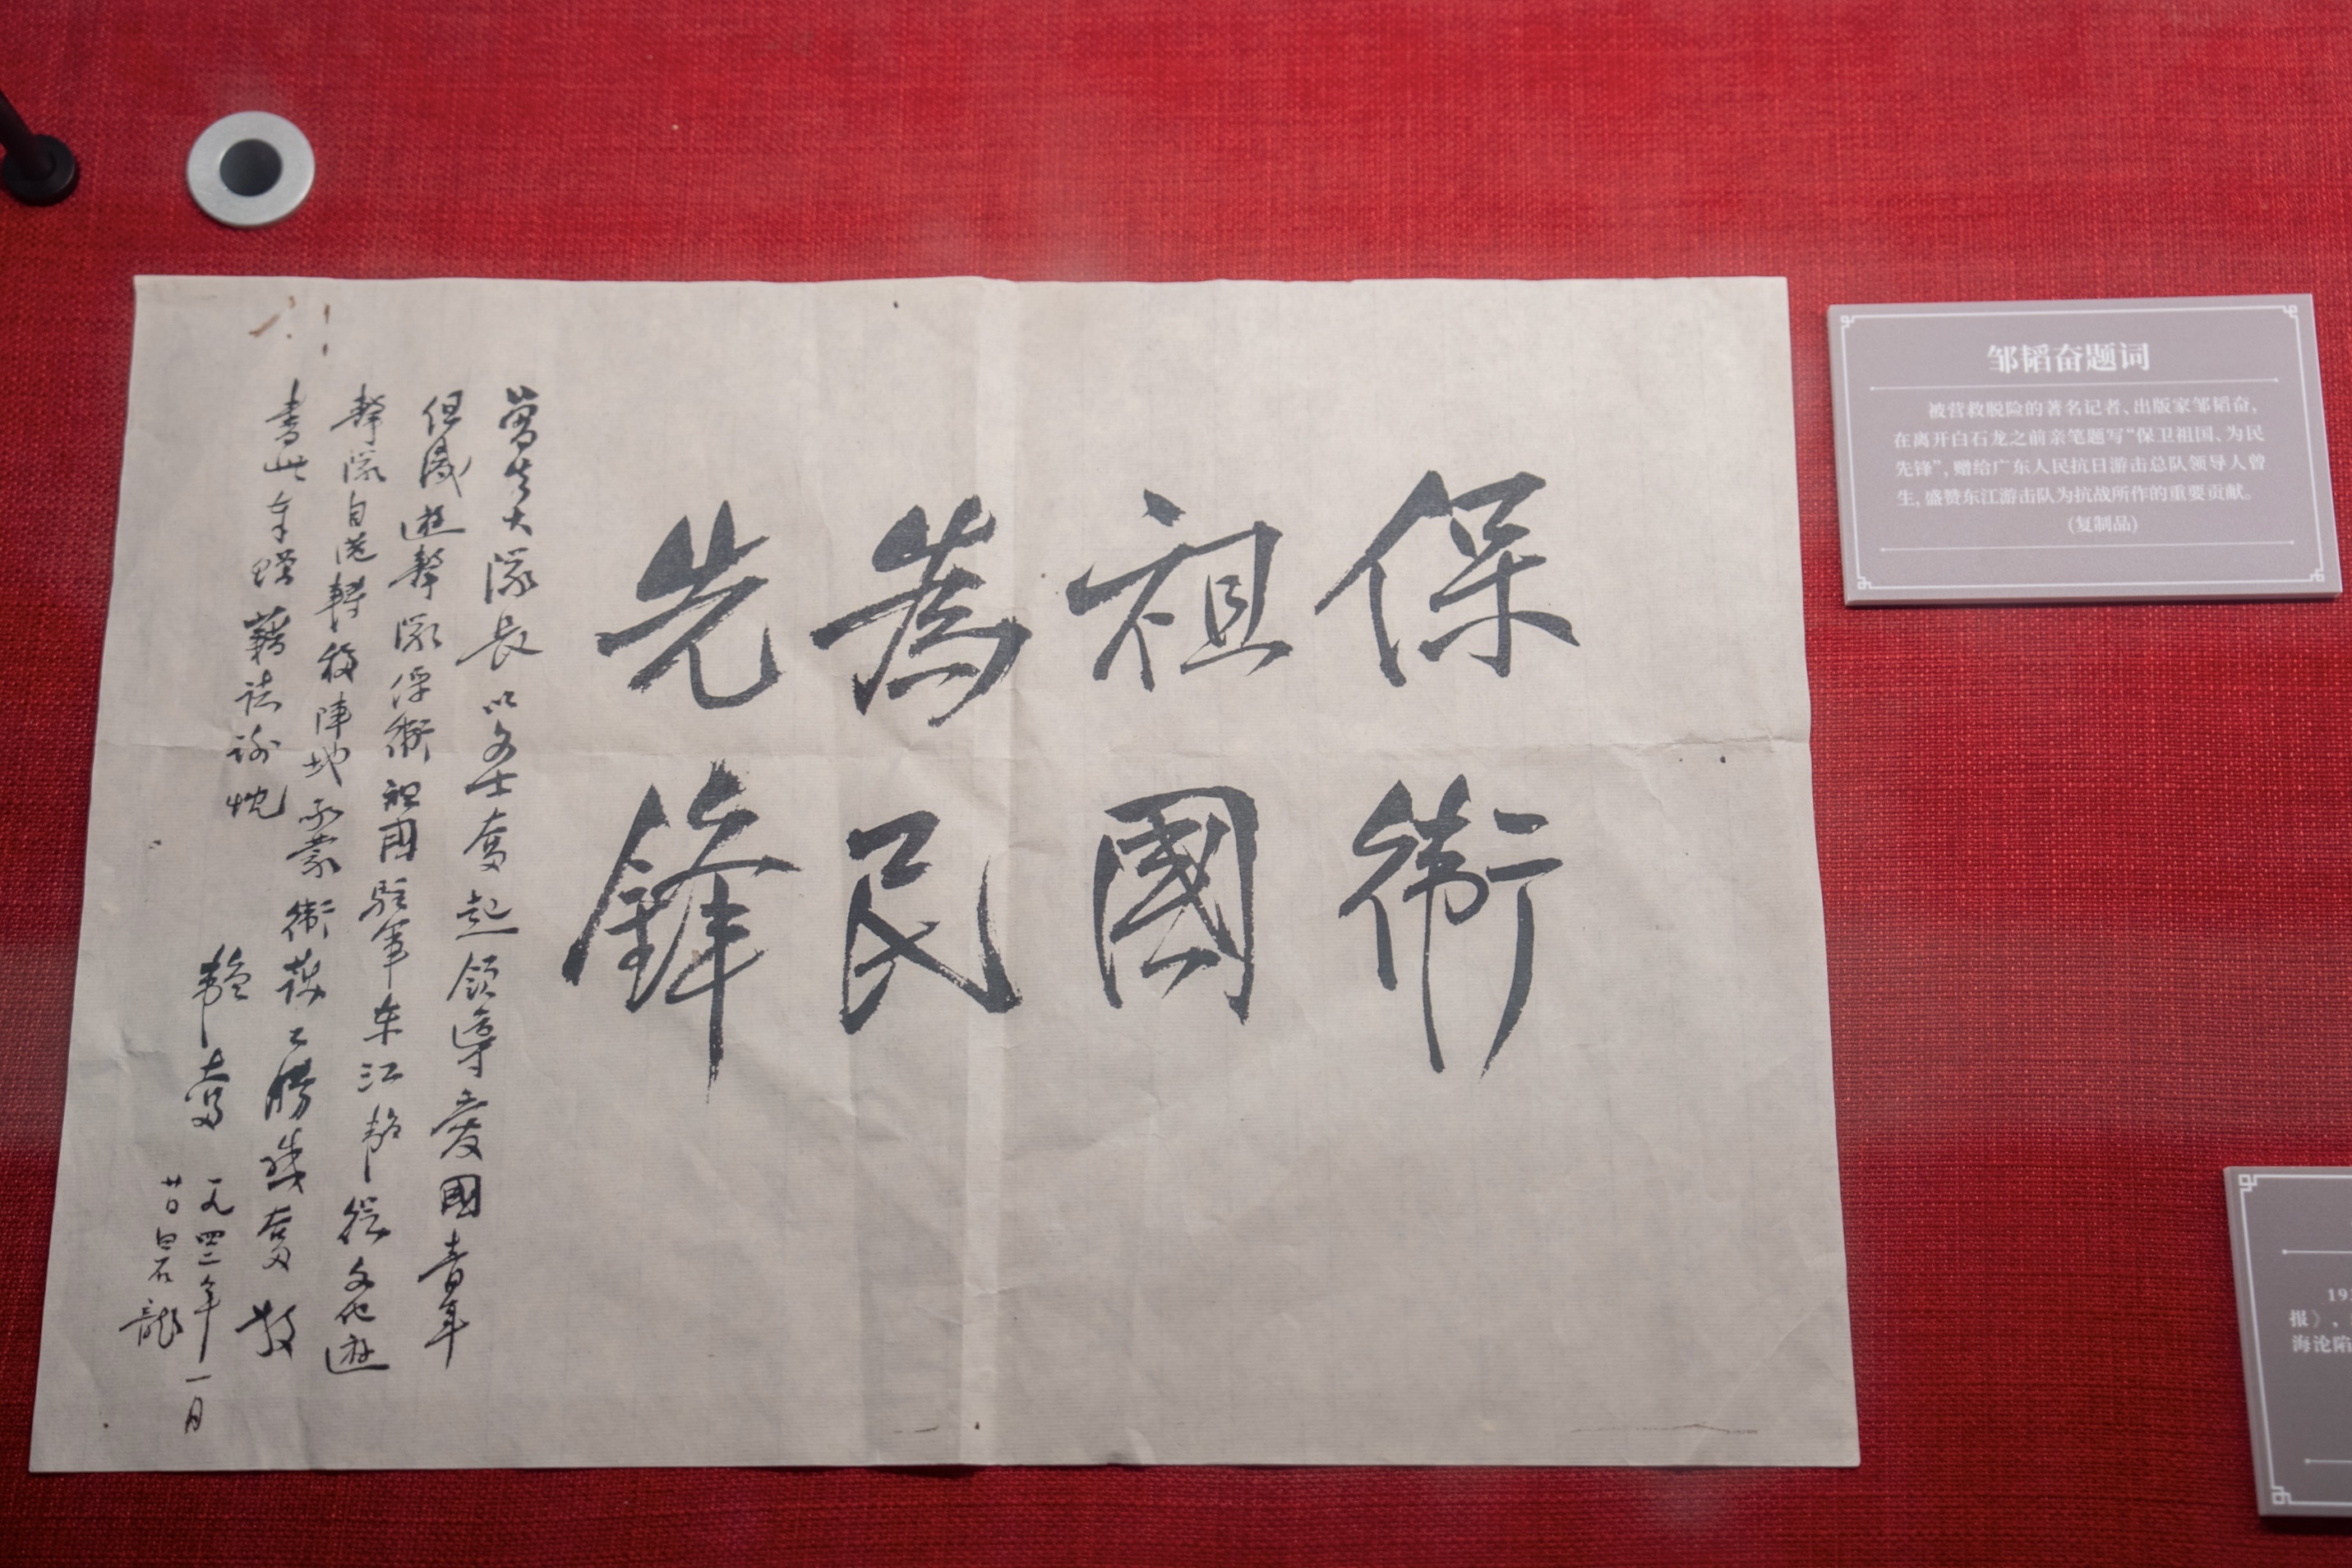 保衛
祖國
為民
先鋒
曾生大隊長以文士奮起領導愛國青年
組成遊擊隊保衛祖國駐軍東江韜從文化遊
擊隊自港轉移陣地承蒙衛護不勝感奮敬
書此奉贈藉誌謝忱
韜奮
一九四二年一月
廿日白石龍
邹韬奋题词
被营救脱险的著名记者、出版家邹韬奋,
在离开白石龙之前亲笔题写“保卫祖国、为民
先锋”,赠给广东人民抗日游击总队领导人曾
生,盛赞东江游击队为抗战所作的重要贡献。
(复制品)
报》,
海沦陷